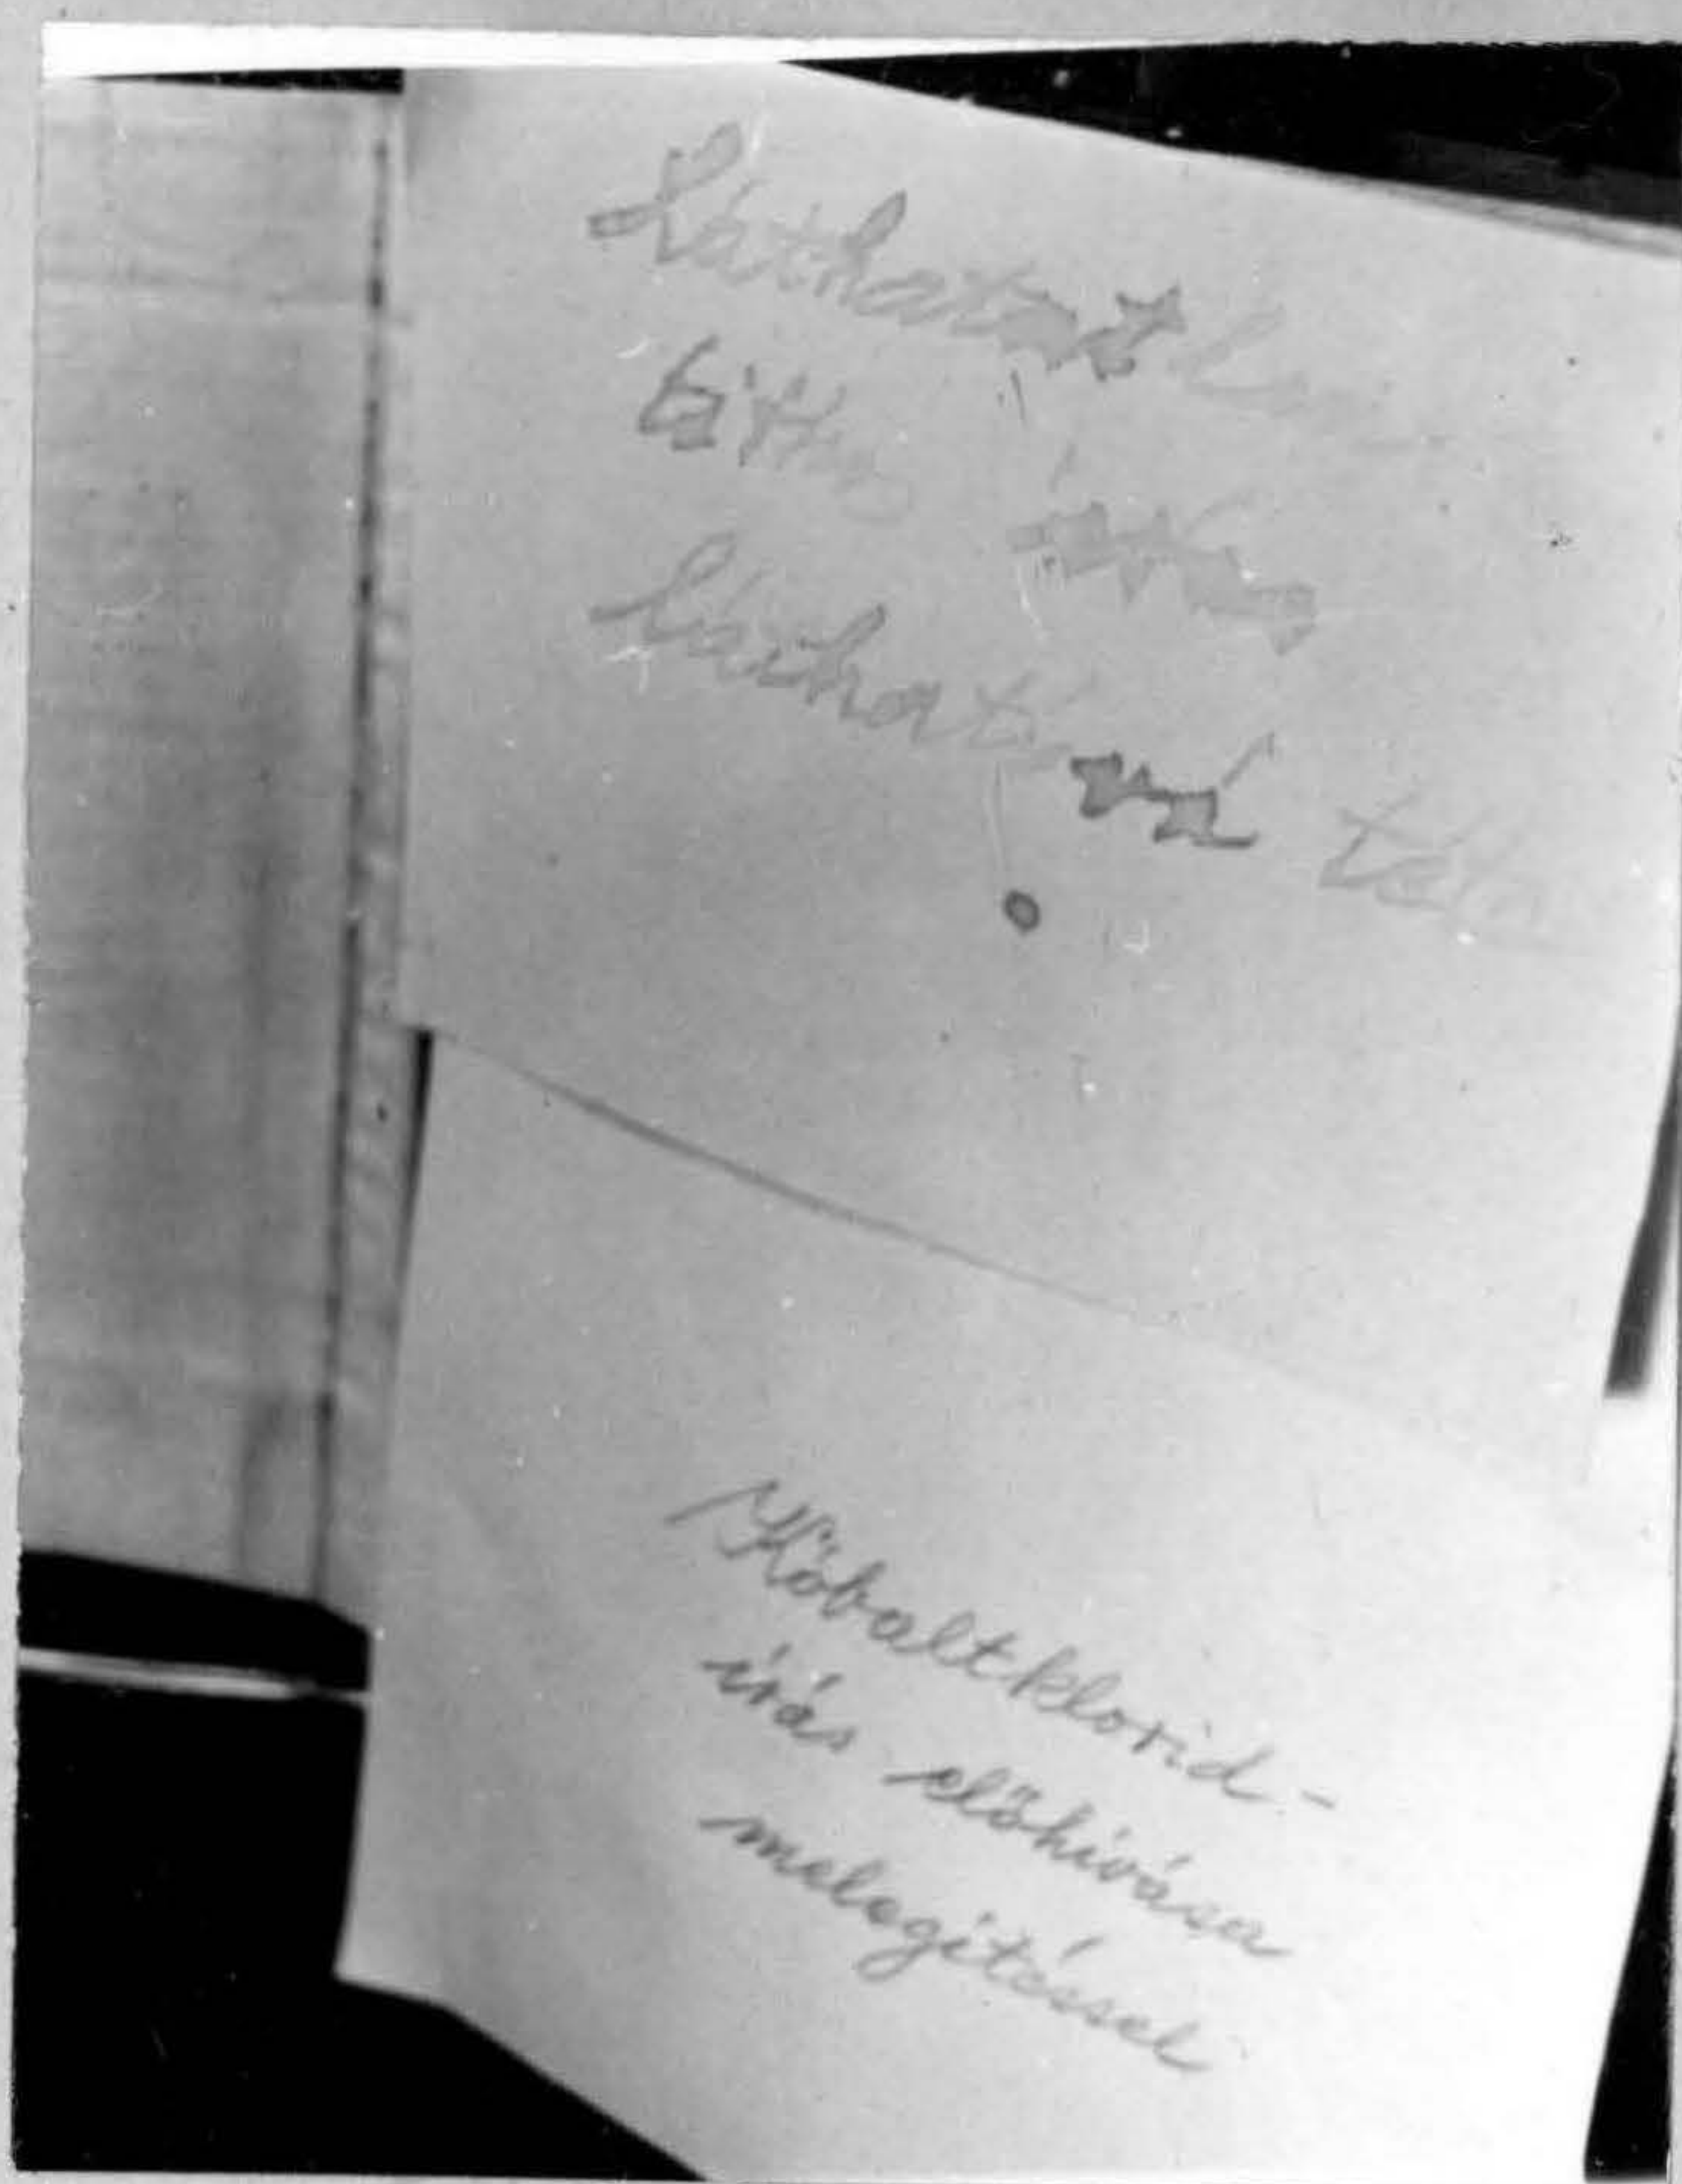 Láthatatlan
titkos írás
láthatóvá téte
Kóbaltklorid-
írás előhívása
melegítéssel